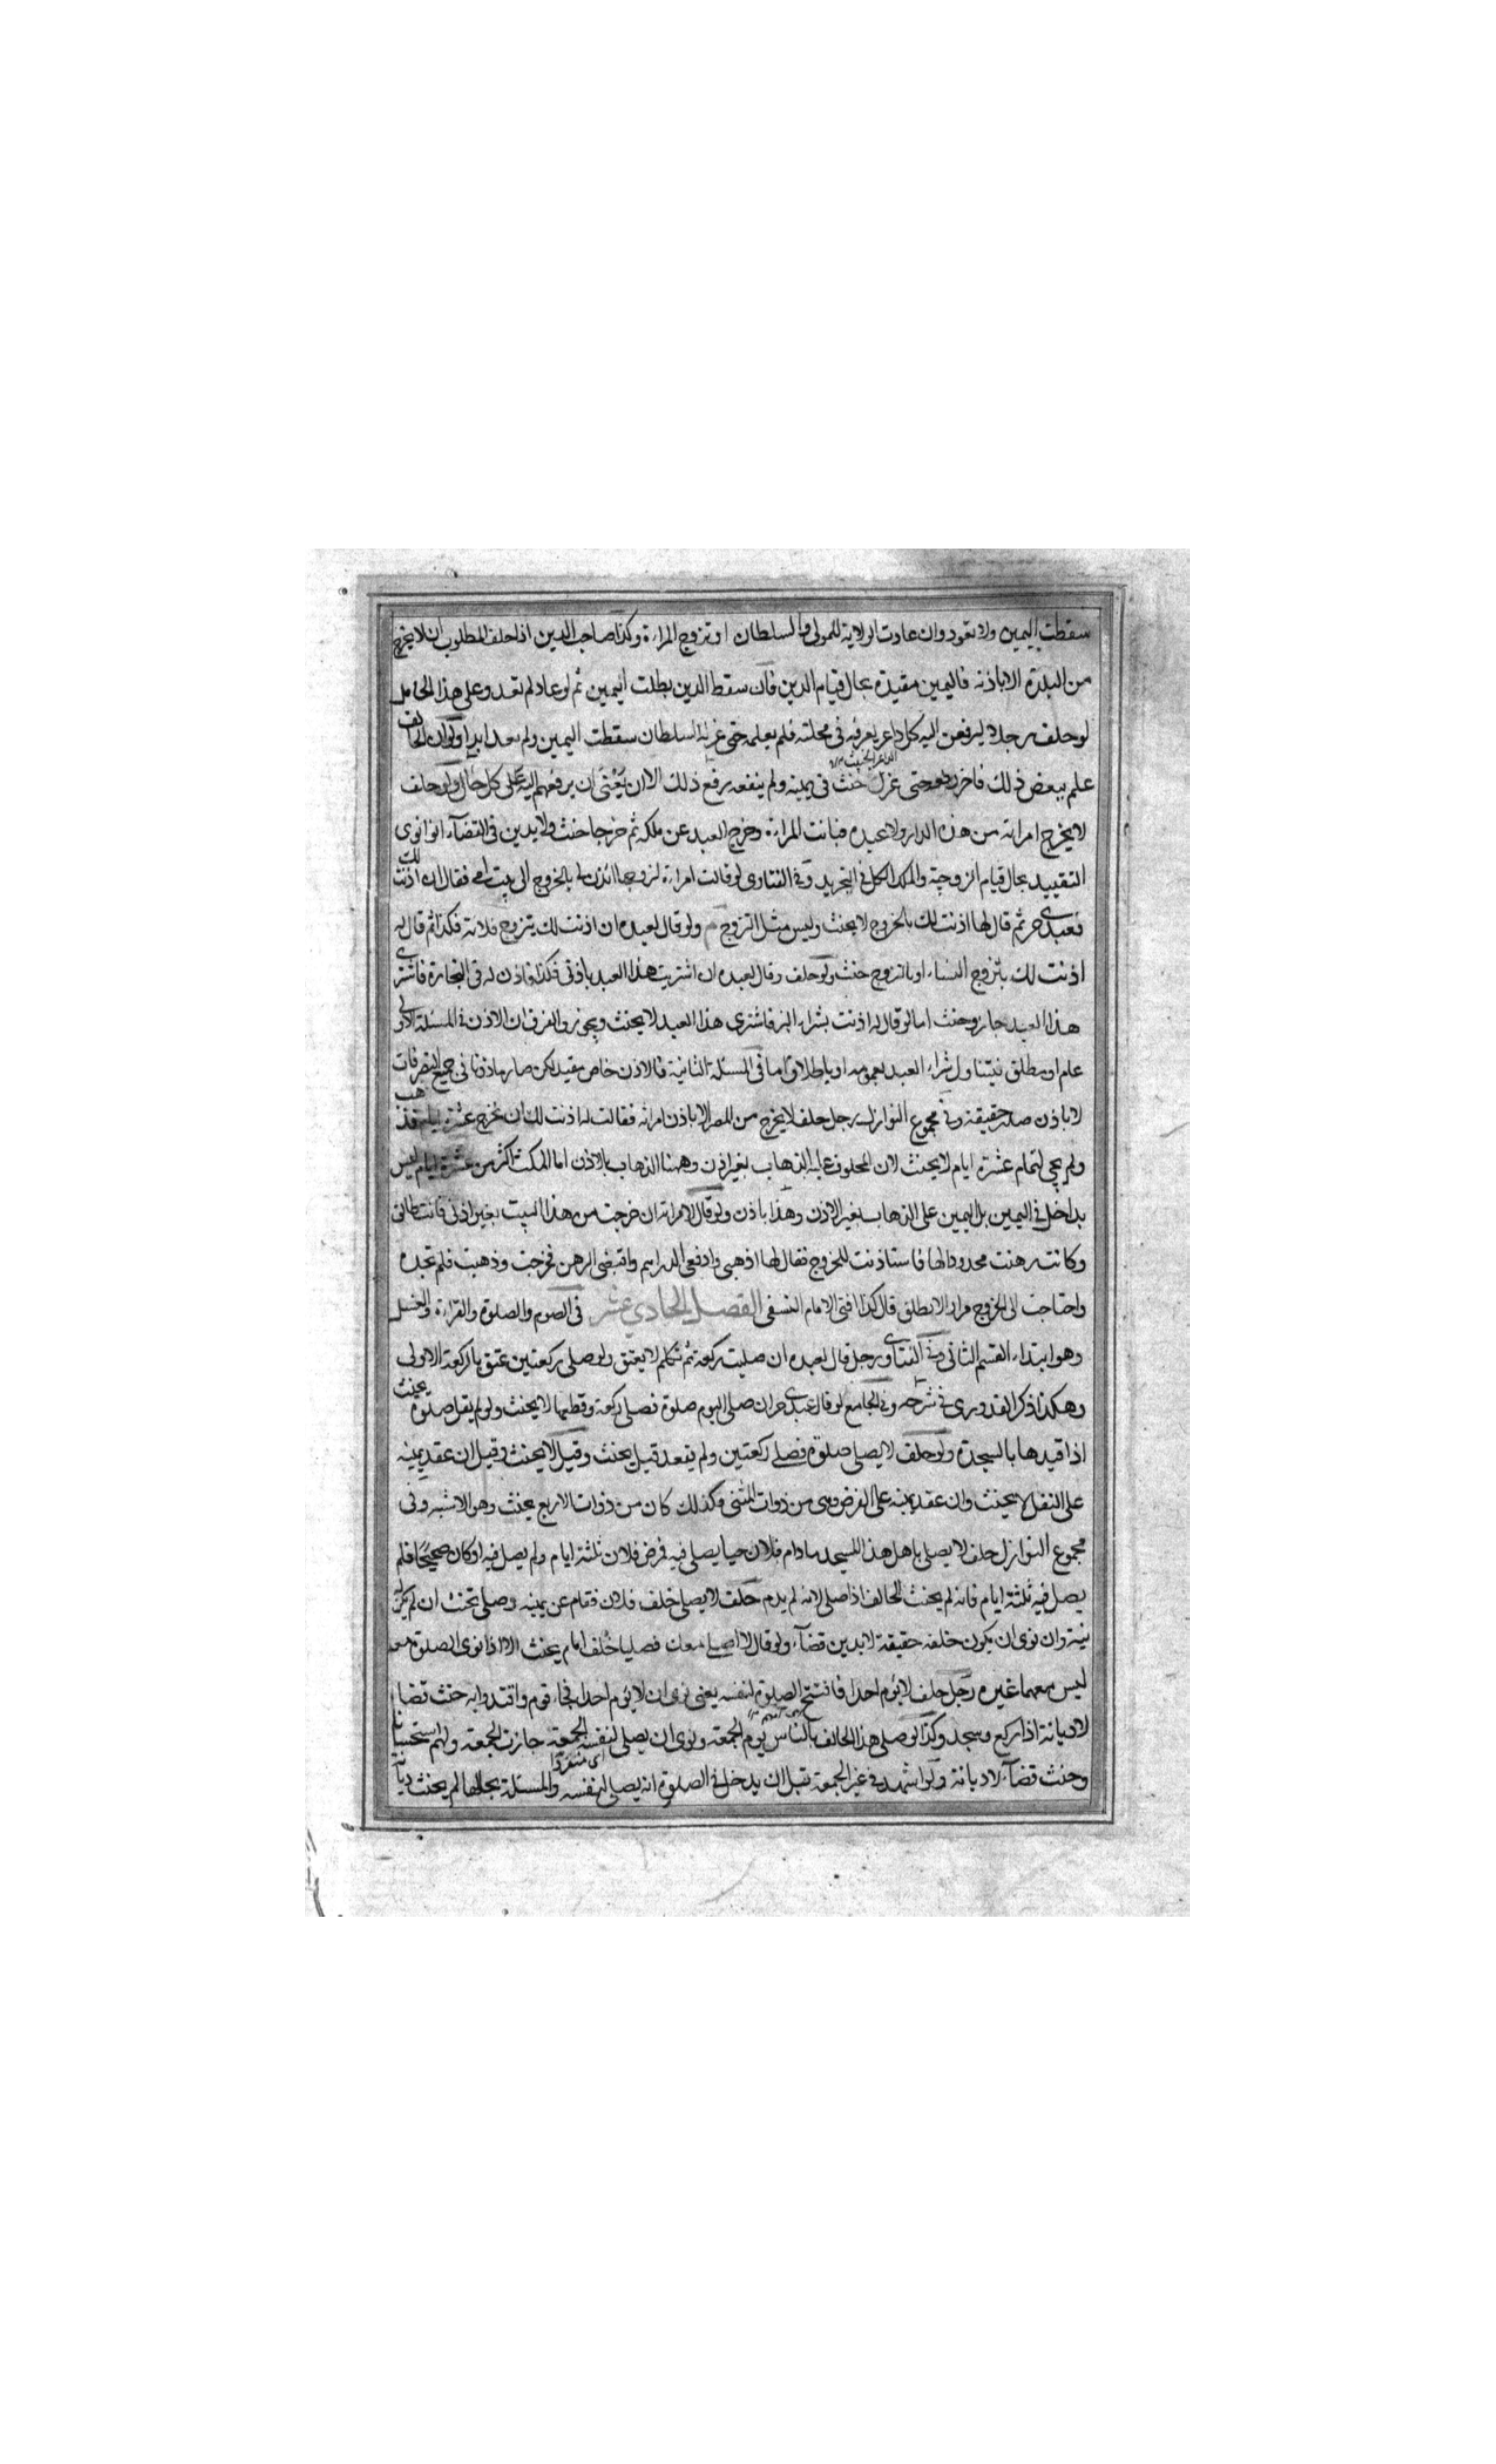 سقطت اليمين ولا تعود وان عادت الولاية للمولى والسلطان او تزوج المراءة وكذا صاحب الدين اذا حلف المطلوب ان لا يخرج
من البلدة الا باذنه فاليمين مقيدة بحال قيام الدين فان سقط الدين بطلت اليمين ثم لو عاد لم تعد وعلى هذا
لو حلف رجلا ليرفعن اليه كل داعر يعرفه فى محلته فلم يعلمه حتى عزل السلطان سقطت اليمين ولم تعد ابدا ولو ان الحالف
الداعر الخبيث
علم ببعض ذلك فاخر حتى عزل حنث فى يمينه ولم ينفعه رفع ذلك الا ان يعنى ان يرفعهم اليه على كل حال ولو حلف
لا يخرج امراته من هذه الدار ولا عبده فبانت المراءة وخرج العبد عن ملكه ثم خرجا حنث ولا يدين فى القضآء انه انوى
التقييد بحال قيام الزوجية والملك الكل فى التجريد وفى الفتاوى لو قالت امراءة لزوجها ائذن لى بالخروج الى بيت امى فقال ان اذنت لك
فعبدى حر ثم قال لها اذنت لك بالخروج لا يحنث وليس مثل التزوج ولو قال لعبده ان اذنت لك بتزوج فلانة فكذا ثم قال له
اذنت لك بتزوج النساء او بالتزوج حنث ولو حلف وقال لعبده ان اشتريت هذا العبد باذنى فكذا فاذن له فى التجارة فاشترى
هذا العبد جاز وحنث اما لو قال له اذنت بشراء البز فاشترى هذا العبد لا يحنث ويجوز والفرق ان الاذن فى المسئلة الاولى
عام او مطلق فيتناول شراء العبد بعمومه او باطلاقه اما فى المسئلة الثانية فالاذن خاص مقيد لكن صار ماذونا فى جميع التصرفات
لا باذن حقيقة وفى مجموع النوازل رجل حلف لا يخرج من المصر الا باذن امراته فقالت له اذنت لك ان تخرج عشرة ايام فذهب
ولم يجئ لتمام عشرة ايام لا يحنث لان المحلوف عليه الذهاب بغير اذن وههنا الذهاب بالاذن اما المكث اكثر من عشرة ايام ليس
بداخل فى اليمين بل اليمين على الذهاب بغير الاذن وهذا باذن ولو قال لامراته ان خرجت من هذا البيت بغير اذنى فانت طالق
وكانت رهنت محدودا لها فاستاذنت للخروج فقال لها اذهبى وادفعى الدراهم واقبضى الرهن فخرجت وذهبت فلم تجده
واحتاجت الى الخروج مرارا لا تطلق قال كذا افتى الامام النسفى الفصل الحادى عشر فى الصوم والصلوة والقراءة والغسل
وهو ابتداء القسم الثانى وفى الفتاوى رجل قال لعبده ان صليت ركعة ثم تكلم لا يعتق ولو صلى ركعتين عتق بالركعة الاولى
وهكذا ذكر القدورى فى شرحه وفى الجامع لو قال عبدى حر ان صلى اليوم صلوة فصلى ركعة وقطعها لا يحنث ولو لم يقل صلوة يحنث
اذا قيدها بالسجدة ولو حلف لا يصلى صلوة فصلى ركعتين ولم يقعد قيل يحنث وقيل لا يحنث وقيل ان عقد يمينه
على النفل لا يحنث وان عقد يمينه على الفرض وهى من ذوات المثنى فكذلك كان من ذوات الاربع يحنث وهو الاشبه وفى
مجموع النوازل حلف لا يصلى باهل هذا المسجد مادام فلان حيا يصلى فيه فرض فلان ثلثة ايام ولم يصل فيه او كان صحيحا فلم
يصل فيه ثلثة ايام فانه لم يحنث الحالف اذا صلى لانه لم يدم حلف لا يصلى خلف فلان فقام عن يمينه وصلى يحنث ان لم يكن له
نية وان نوى ان يكون خلفه حقيقة لا يدين قضآء ولو قال لا اصلى معك فصليا خلف امام يحنث الا اذا نوى الصلوة معه
ليس معهما غيره رجل حلف لا يؤم احدا فافتتح الصلوة لنفسه يعنى نوى ان لا يؤم احدا فجاء قوم واقتدوا به حنث قضاء
لا ديانة اذا ركع وسجد وكذا لو صلى هذا الحالف بالناس يوم الجمعة ونوى ان يصلى لنفسه الجمعة جازت الجمعة ولهم استحسانا
اى منفردا
وحنث قضآء لا ديانة ولو اشهد فى غير الجمعة قبل ان يدخل فى الصلوة انه يصلى لنفسه والمسئلة بحالها لم يحنث ديانة